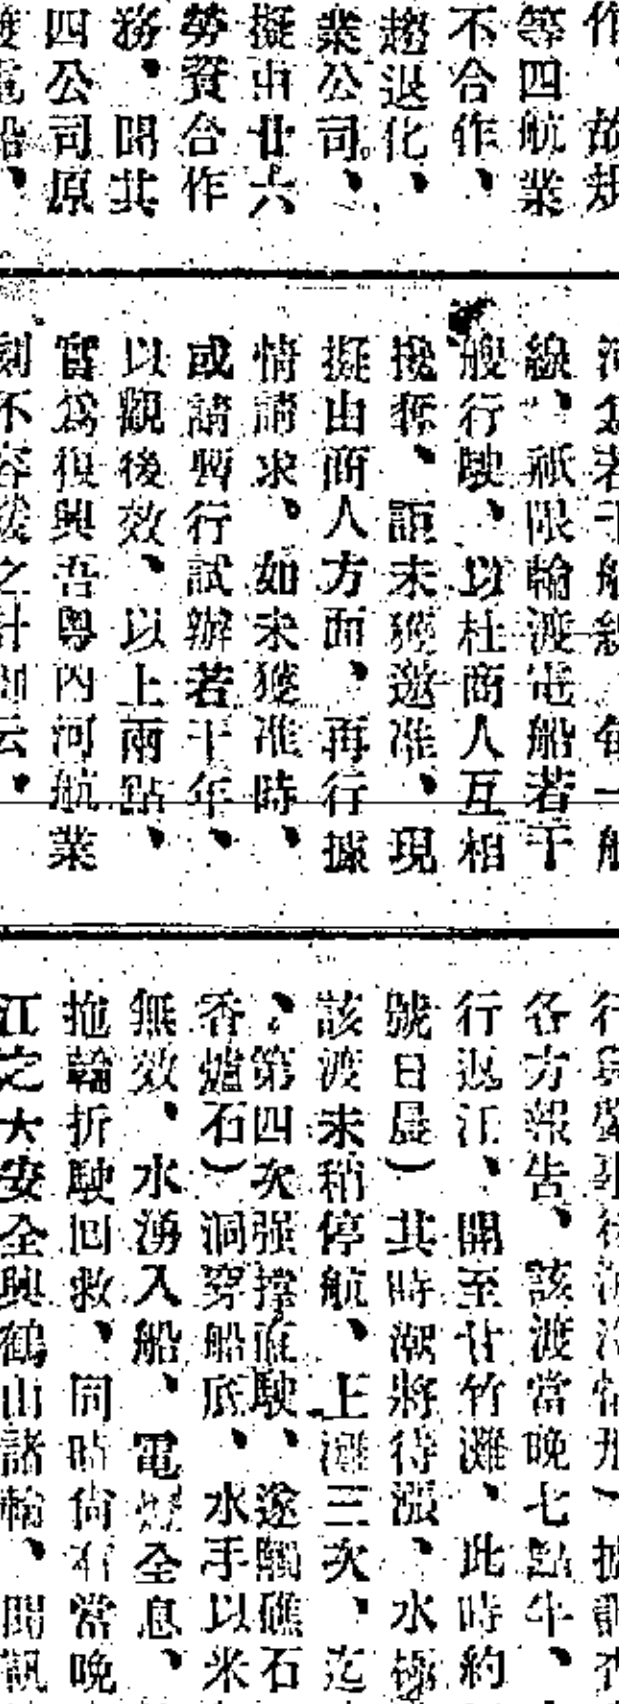 作、故規
等四航業
不合作、
趨退化、
業公司、
擬由廿六
勞資合作
務、聞其
四公司原
渡電船、
河為若干航線、每一航
線、祇限輪渡電船若干
艘行駛、以杜商人互相
攙奪、詎未獲邀准、現
擬由商人方面、再行據
情請求、如未獲准時、
或請暫行試辦若干年、
以觀後效、以上兩點、
實為復興吾粵內河航業
刻不容緩之計劃云、
各方報告、該渡當晚七點半、
行返江、開至甘竹灘、此時約
號日晨）其時潮將待漲、水極
該渡未稍停航、上灘三次、迄
、第四次强撑直駛、遂觸礁石
香爐石）洞穿船底、水手以米
無效、水湧入船、電燈全息、
拖輪折駛回救、同時尚有當晚
江之大安全興鶴山諸輪、聞訊